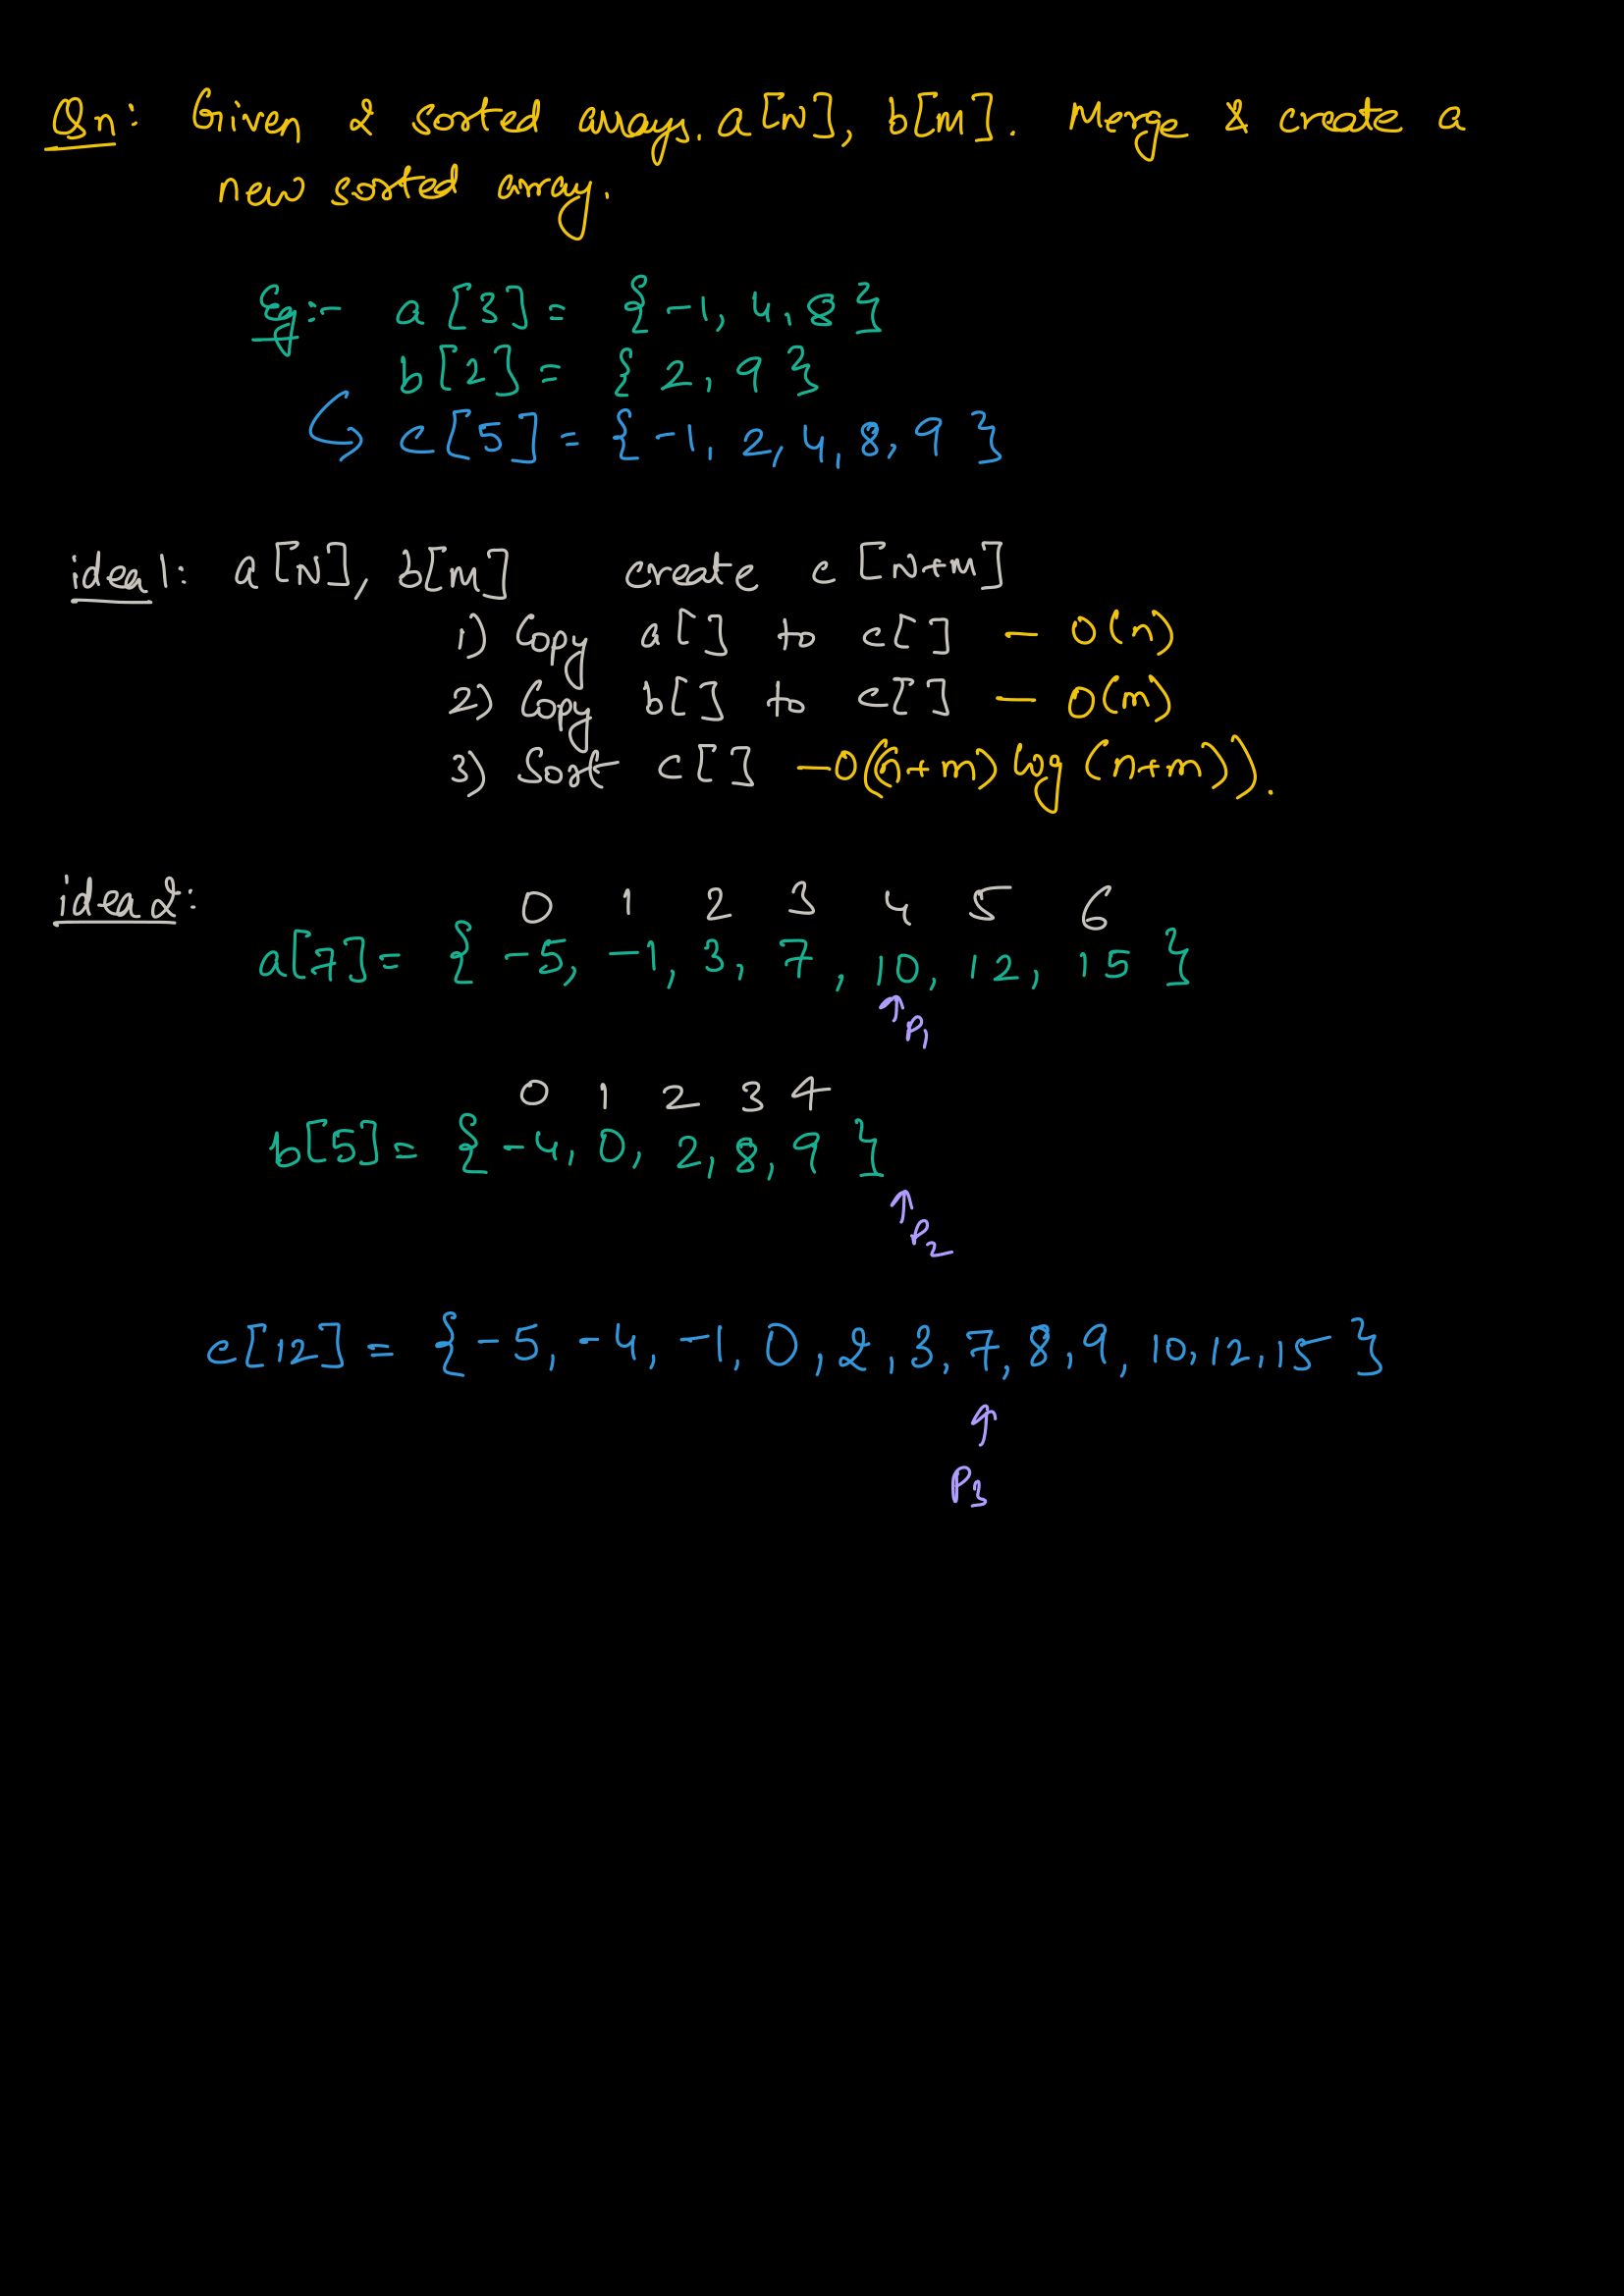 Qn: Given 2 sorted arrays. a[N], b[M]. Merge & create a
new sorted array.
Eg:- a[3] = {-1, 4, 8}
b[2] = {2, 9}
c[5] = {-1, 2, 4, 8, 9}
idea1: a[N], b[M] create c[N+M]
1) Copy a[] to c[] - O(n)
2) Copy b[] to c[] - O(m)
3) Sort c[] - O((n+m) log (n+m)).
idea2: 0 1 2 3 4 5 6
a[7] = {-5, -1, 3, 7, 10, 12, 15}
↑P1
0 1 2 3 4
b[5] = {-4, 0, 2, 8, 9}
↑P2
c[12] = {-5, -4, -1, 0, 2, 3, 7, 8, 9, 10, 12, 15}
↑
P3